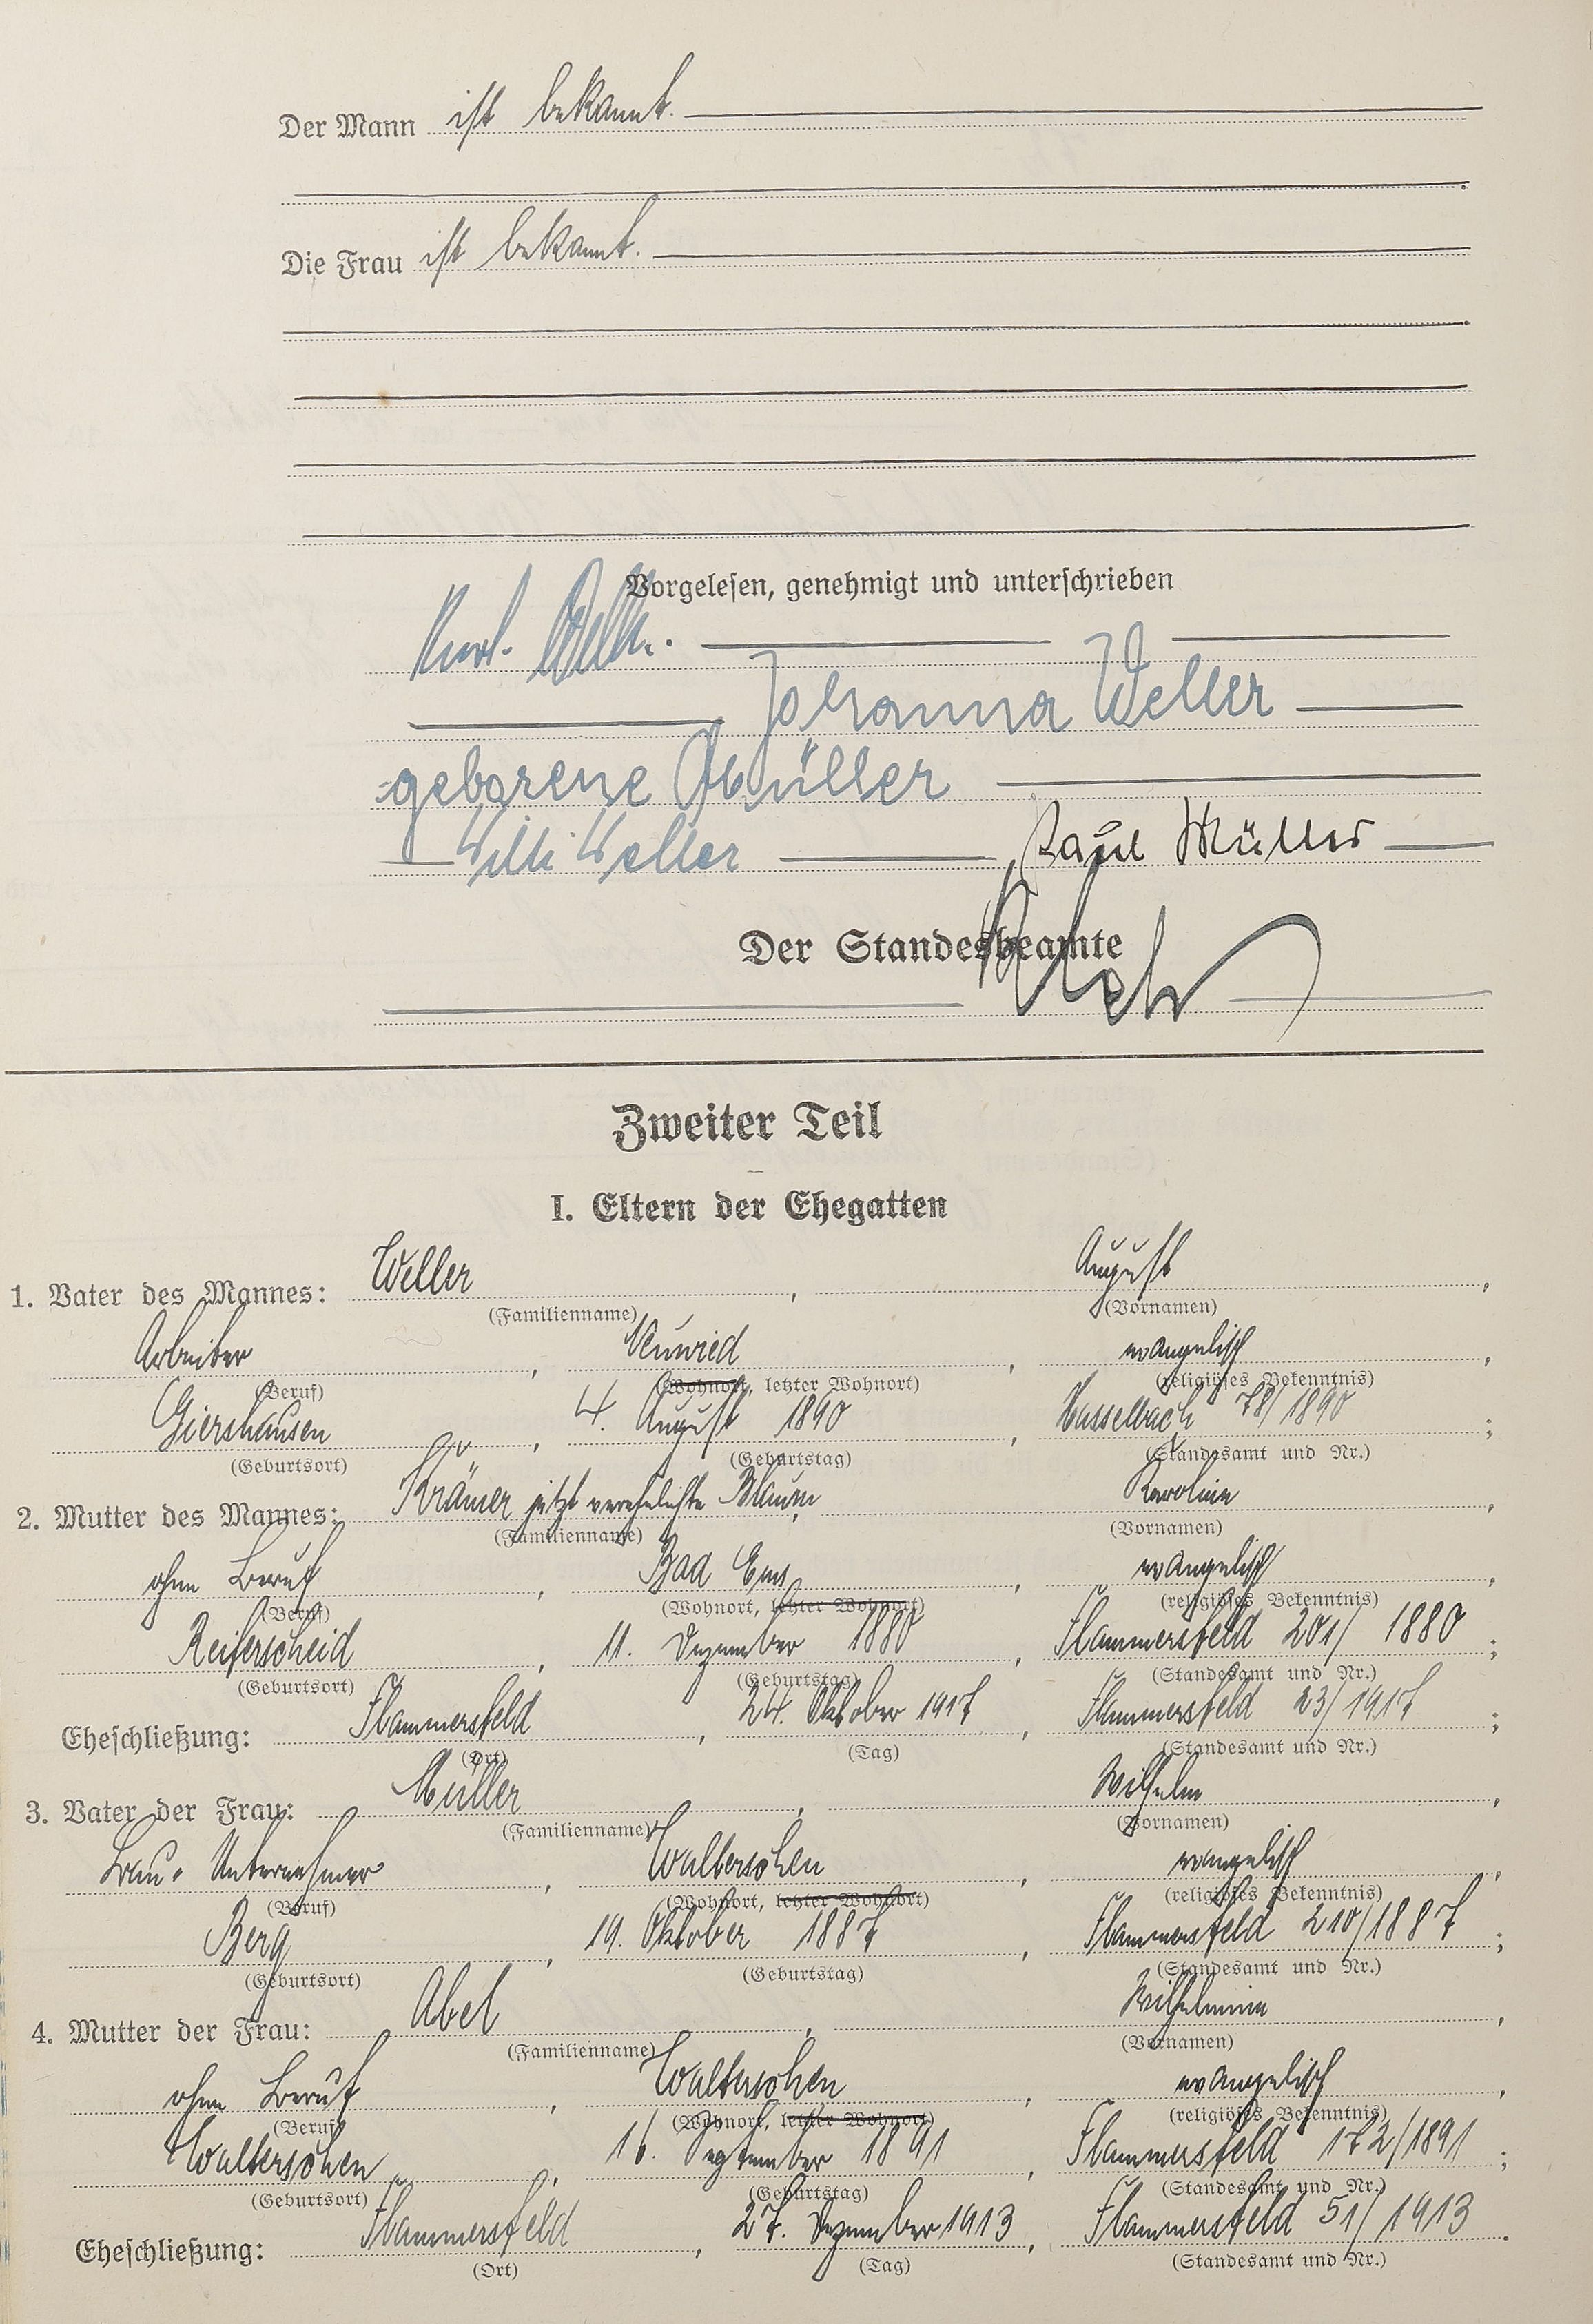 Der Mann ist bekannt.
Die Frau ist bekannt.
Vorgelesen, genehmigt und unterschrieben
Weller.
Johanna Weller
geborene Müller
Willi Weller Paul Müller
Der Standesbeamte
Zweiter Teil
I. Eltern der Ehegatten
1. Vater des Mannes: Weller, August,
(Familienname) (Vornamen)
Arbeiter, Neuwied, evangelisch,
(Beruf) (Wohnort, letzter Wohnort) (religiöses Bekenntnis)
Giershausen, 4. August 1890, Hasselbach 78/1890;
(Geburtsort) (Geburtstag) (Standesamt und Nr.)
2. Mutter des Mannes: Krämer jetzt verehelichte Karoline,
(Familienname) (Vornamen)
ohne Beruf, Bad Ems, evangelisch,
(Beruf) (Wohnort, letzter Wohnort) (religiöses Bekenntnis)
Reiferscheid, 11. Dezember 1880, Flammersfeld 201/1880;
(Geburtsort) (Geburtstag) (Standesamt und Nr.)
Eheschließung: Flammersfeld, 24. Oktober 1917, Flammersfeld 23/1917;
(Ort) (Tag) (Standesamt und Nr.)
3. Vater der Frau: Müller, Wilhelm,
(Familienname) (Vornamen)
Bau-Unternehmer, Walterschen, evangelisch,
(Beruf) (Wohnort, letzter Wohnort) (religiöses Bekenntnis)
Berg, 19. Oktober 1887, Flammersfeld 210/1887;
(Geburtsort) (Geburtstag) (Standesamt und Nr.)
4. Mutter der Frau: Abel, Wilhelmine,
(Familienname) (Vornamen)
ohne Beruf, Walterschen, evangelisch,
(Beruf) (Wohnort, letzter Wohnort) (religiöses Bekenntnis)
Walterschen, 16. September 1891, Flammersfeld 172/1891;
(Geburtsort) (Geburtstag) (Standesamt und Nr.)
Eheschließung: Flammersfeld, 27. Dezember 1913, Flammersfeld 51/1913.
(Ort) (Tag) (Standesamt und Nr.)